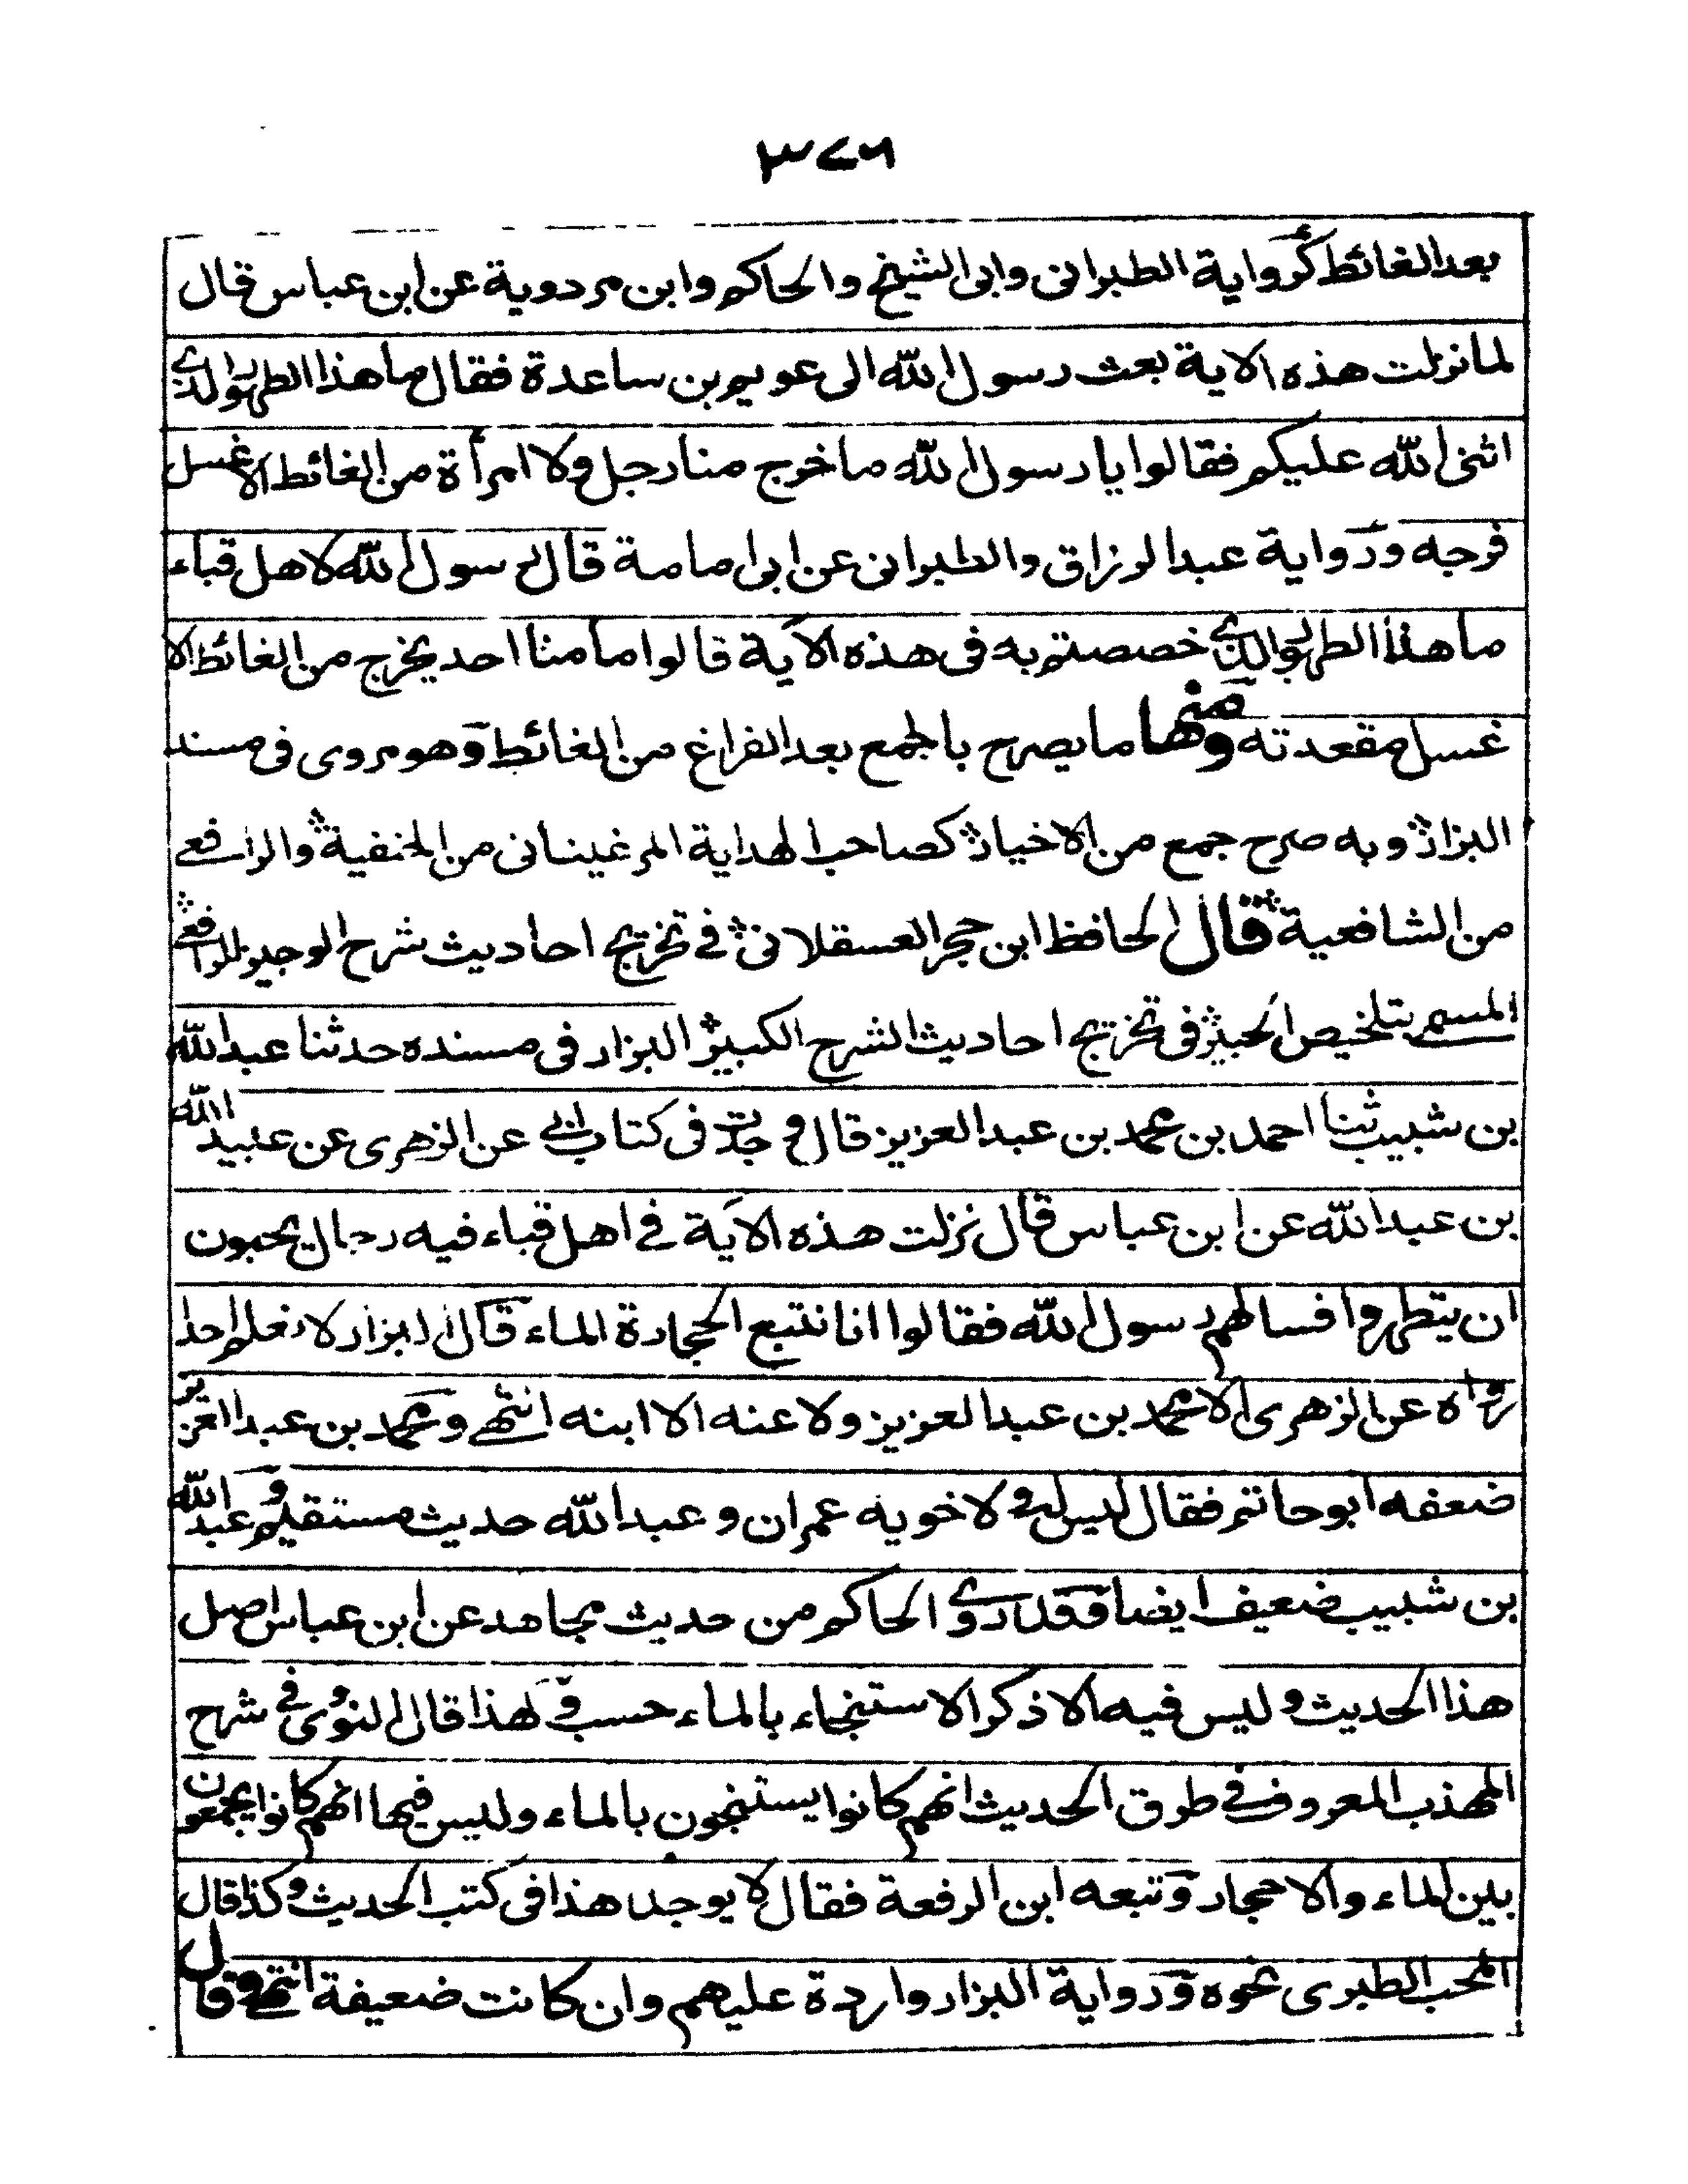 ٣٧٦
بعد الغائط كرواية الطبرانى وابى الشيخ والحاكم وابن مردوية عن ابن عباس قال
لما نزلت هذه الاية بعث رسول الله الى عويم بن ساعدة فقال ما هذا الطهور الذى
اثنى الله عليكم فقالوا يا رسول الله ما خرج منا رجل ولا امرأة من الغائط الا غسل
فرجه ورواية عبد الرزاق والطبرانى عن ابى امامة قال رسول الله لاهل قباء
ما هذا الطهور الذى خصصتم به فى هذه الآية قالوا ما منا احد يخرج من الغائط الا
غسل مقعدته ومنها ما يصرح بالجمع بعد الفراغ من الغائط وهو مروى فى مسند
البزار وبه صرح جمع من الاخيار كصاحب الهداية المرغينانى من الحنفية والرافعى
من الشافعية قال الحافظ ابن حجر العسقلانى فى تخريج احاديث شرح الوجيز للرافعى
المسمى بتلخيص الحبير فى تخريج احاديث الشرح الكبير البزار فى مسنده حدثنا عبد الله
بن شبيب ثنا احمد بن محمد بن عبد العزيز قال وجدت فى كتاب ابى عن الزهرى عن عبيد الله
بن عبد الله عن ابن عباس قال نزلت هذه الآية فى اهل قباء فيه رجال يحبون
ان يتطهروا فسالهم رسول الله فقالوا انا نتبع الحجارة الماء قال البزار لا نعلم احدا
رواه عن الزهرى الا محمد بن عبد العزيز ولا عنه الا ابنه انتهى ومحمد بن عبد العزيز
ضعفه ابو حاتم فقال ليس له ولا خويه عمران و عبد الله حديث مستقيم وعبد الله
بن شبيب ضعيف ايضا فقد روى الحاكم من حديث مجاهد عن ابن عباس اصل
هذا الحديث وليس فيه الا ذكر الاستنجاء بالماء حسب ولهذا قال النووى فى شرح
المهذب المعروف فى طرق الحديث انهم كانوا يستنجون بالماء وليس فيها انهم كانوا يجمعون
بين الماء والاحجار وتبعه ابن الرفعة فقال لا يوجد هذا فى كتب الحديث وكذا قال
المحب الطبرى نحوه ورواية البزار واردة عليهم وان كانت ضعيفة انتهى وقال